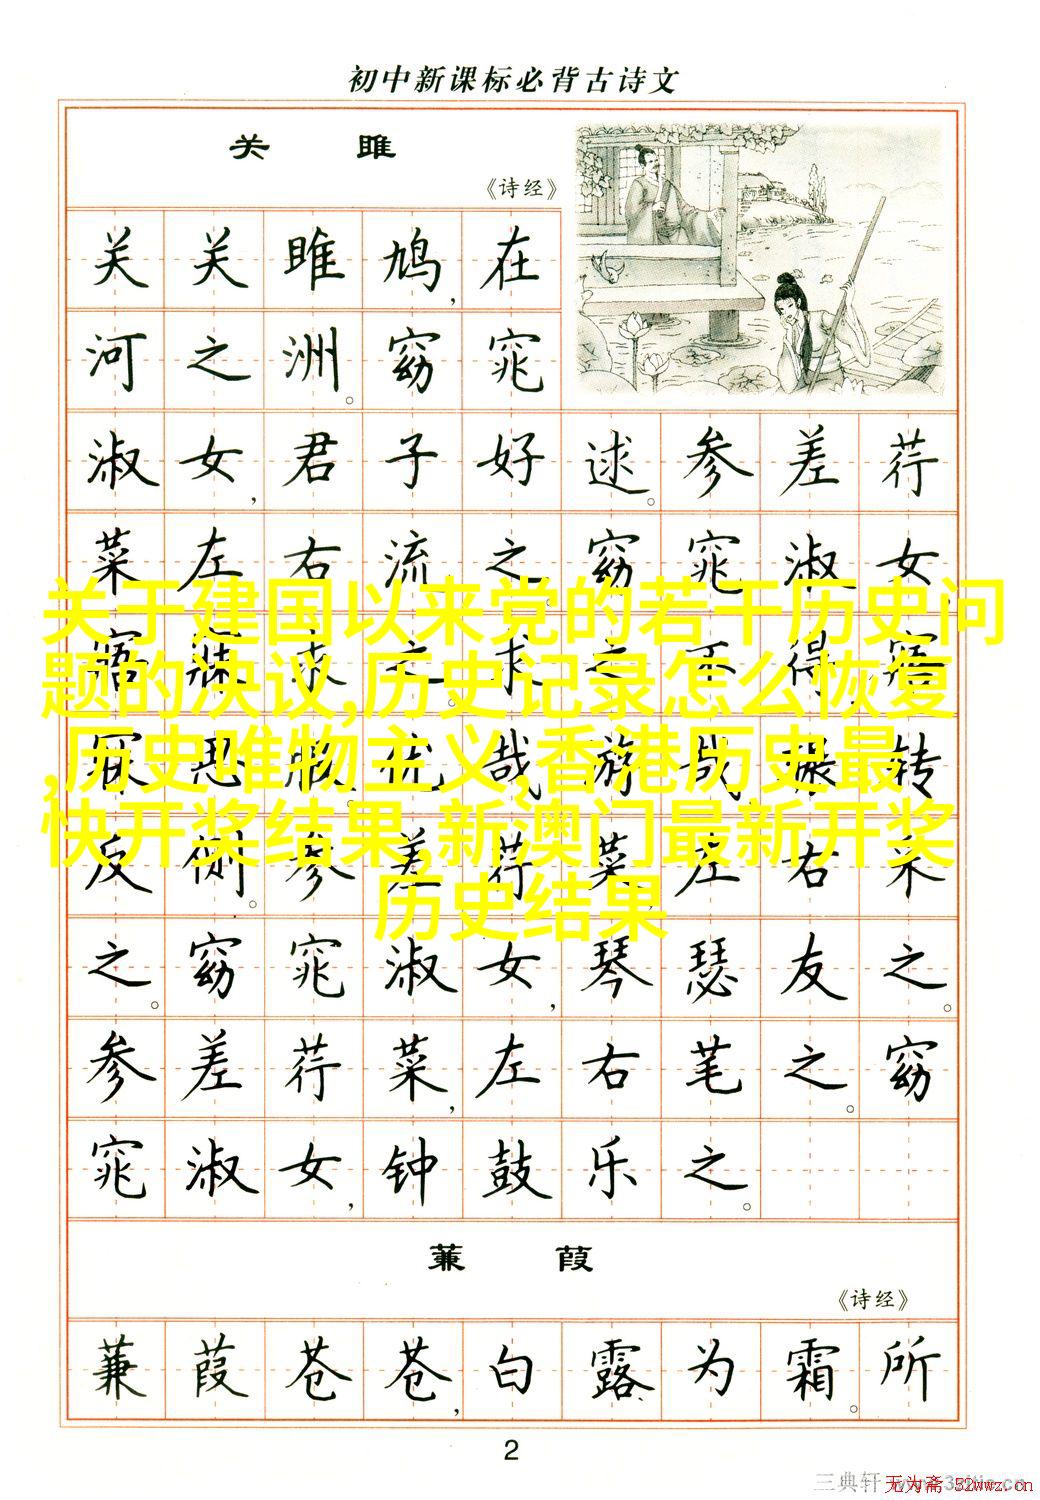 初中新课标必背古诗文
关 雎
《诗经》
关关雎鸠,在
河之洲。窈窕
淑女,君子好逑。参差荇
菜左右流之。窈窕淑女,
寤寐求之。求之不得,寤
寐思服。优哉游哉,辗转
反侧。参差荇菜,左右采
之。窈窕淑女,琴瑟友之。
参差荇菜,左右芼之。窈
窕淑女,钟鼓乐之。
关于建国以来党的若干历史问
题的决议,历史记录怎么恢复
,历史唯物主义,香港历史最
快开奖结果,新澳门最新开奖
历史结果
蒹 葭
《诗经》
蒹葭苍苍,白露为霜。所
2
三典轩
无为斋 52wwz.cn